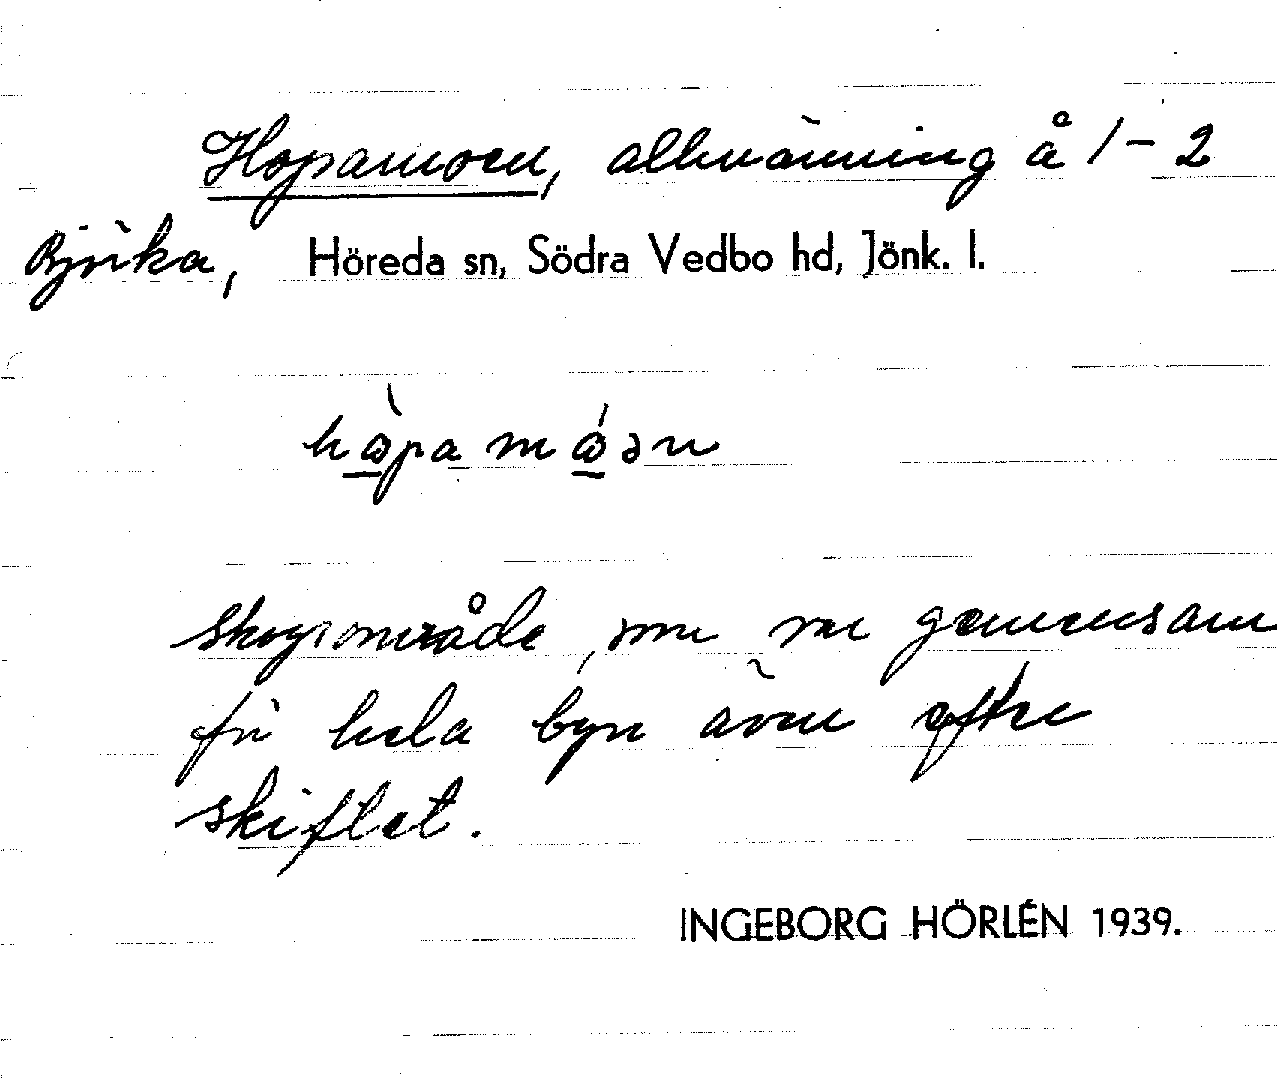 Hopamoen, allmänning å 1-2
Björka, Höreda sn, Södra Vedbo hd, Jönk. l.
hòpa móən
skogsområde, som var gemensam
för hela byn även efter
skiftet.
INGEBORG HÖRLÉN 1939.